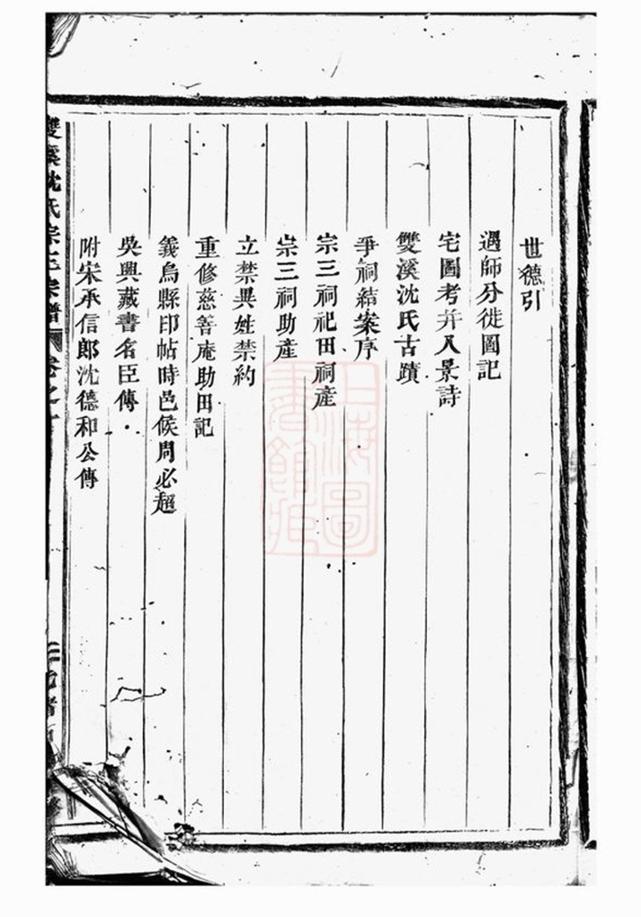 世德引
遇師分徙圖記
宅圖考并入景詩
雙溪沈氏古蹟
爭祠結案序
宗三祠祀田祠產
宗三祠助產
立禁異姓禁約
重修慈善庵助田記
義烏縣印帖時邑侯周必超
吳興藏書名臣傳
附宋承信郎沈德和公傳
雙溪沈氏宗譜
上海圖書館藏